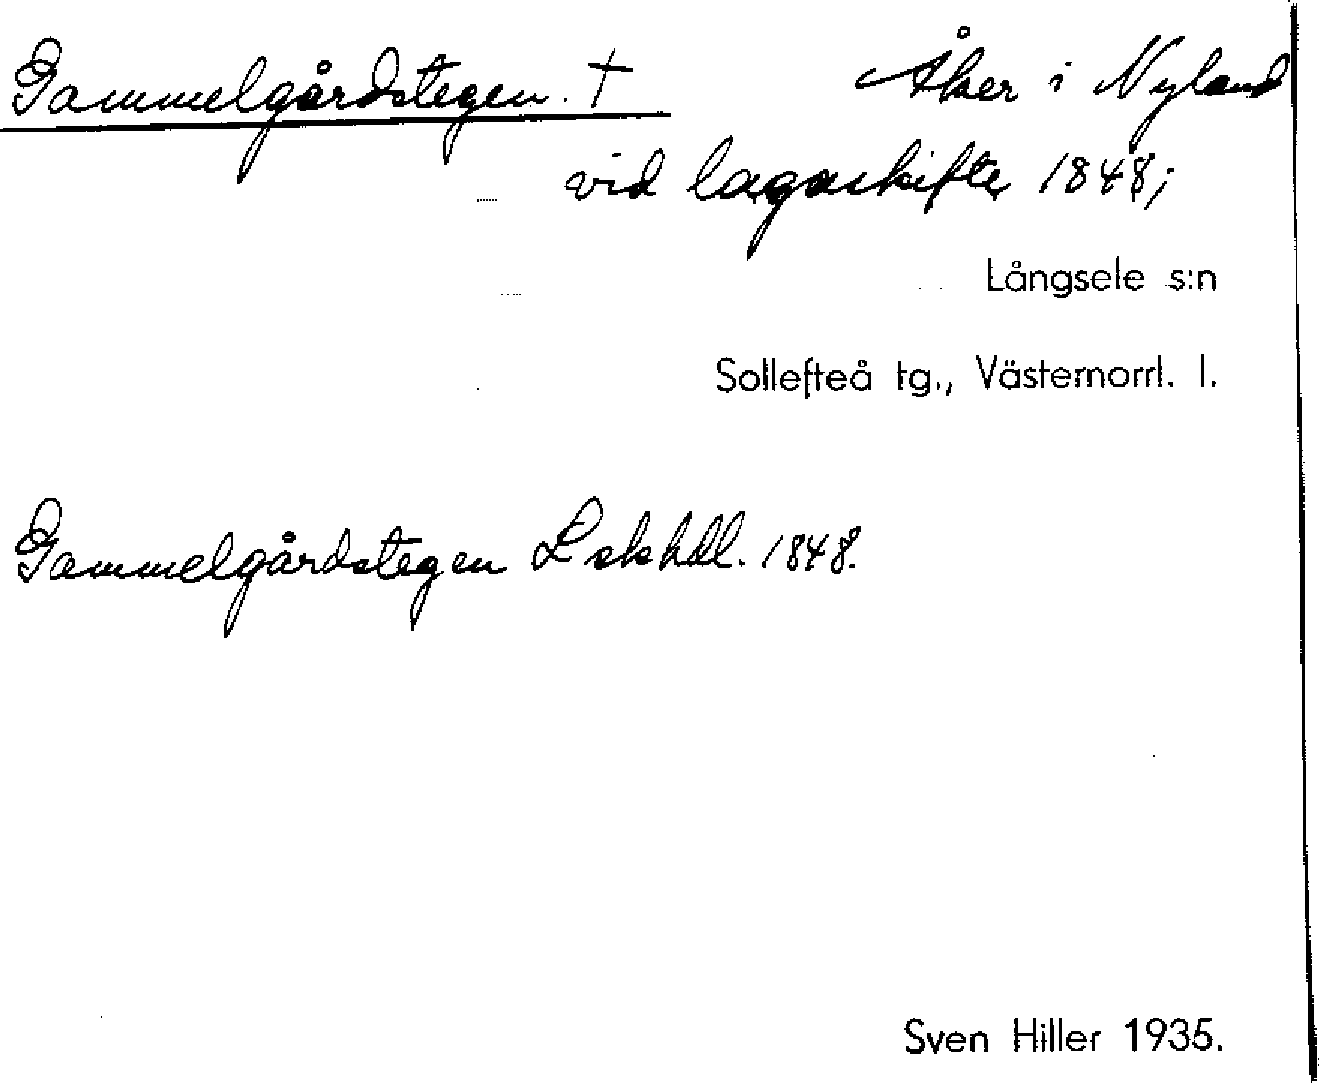 Gammelgårdstegen. † Åker i Nyland
vid lagaskifte 1848;
Långsele s:n
Sollefteå tg., Västernorrl. l.
Gammelgårdstegen Lskhdl. 1848.
Sven Hiller 1935.